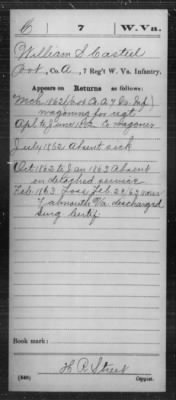 C 7 W. Va.
William S. Casteel
Pvt., Co. A, 7 Reg't W. Va. Infantry.
Appears on Returns as follows:
Mch 1862 (
wagoning for regt
Apl to June 1862 Co wagoner
July 1862 Absent sick
Oct 1862 to Jan 1863 Absent
on detached service
Feb. 1863. Loss, Feb. 20/63 near
Falmouth Va. discharged
Surg. Certif.
Book mark:
H. P. Street
(546) Copyist.